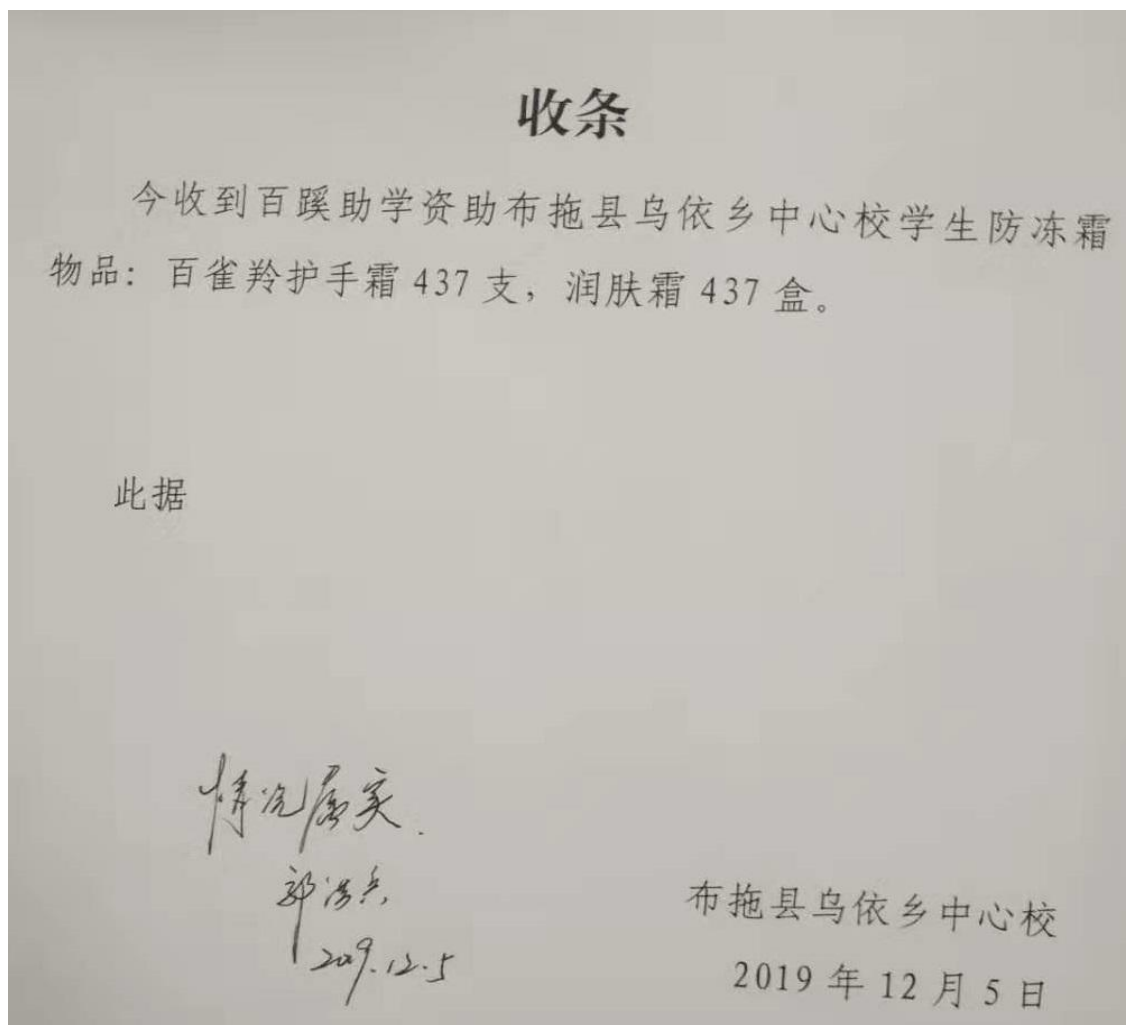 收条
今收到百蹊助学资助布拖县乌依乡中心校学生防冻霜
物品：百雀羚护手霜 437 支，润肤霜 437 盒。
此据
情况属实.
2019.12.5
布拖县乌依乡中心校
2019 年 12 月 5 日